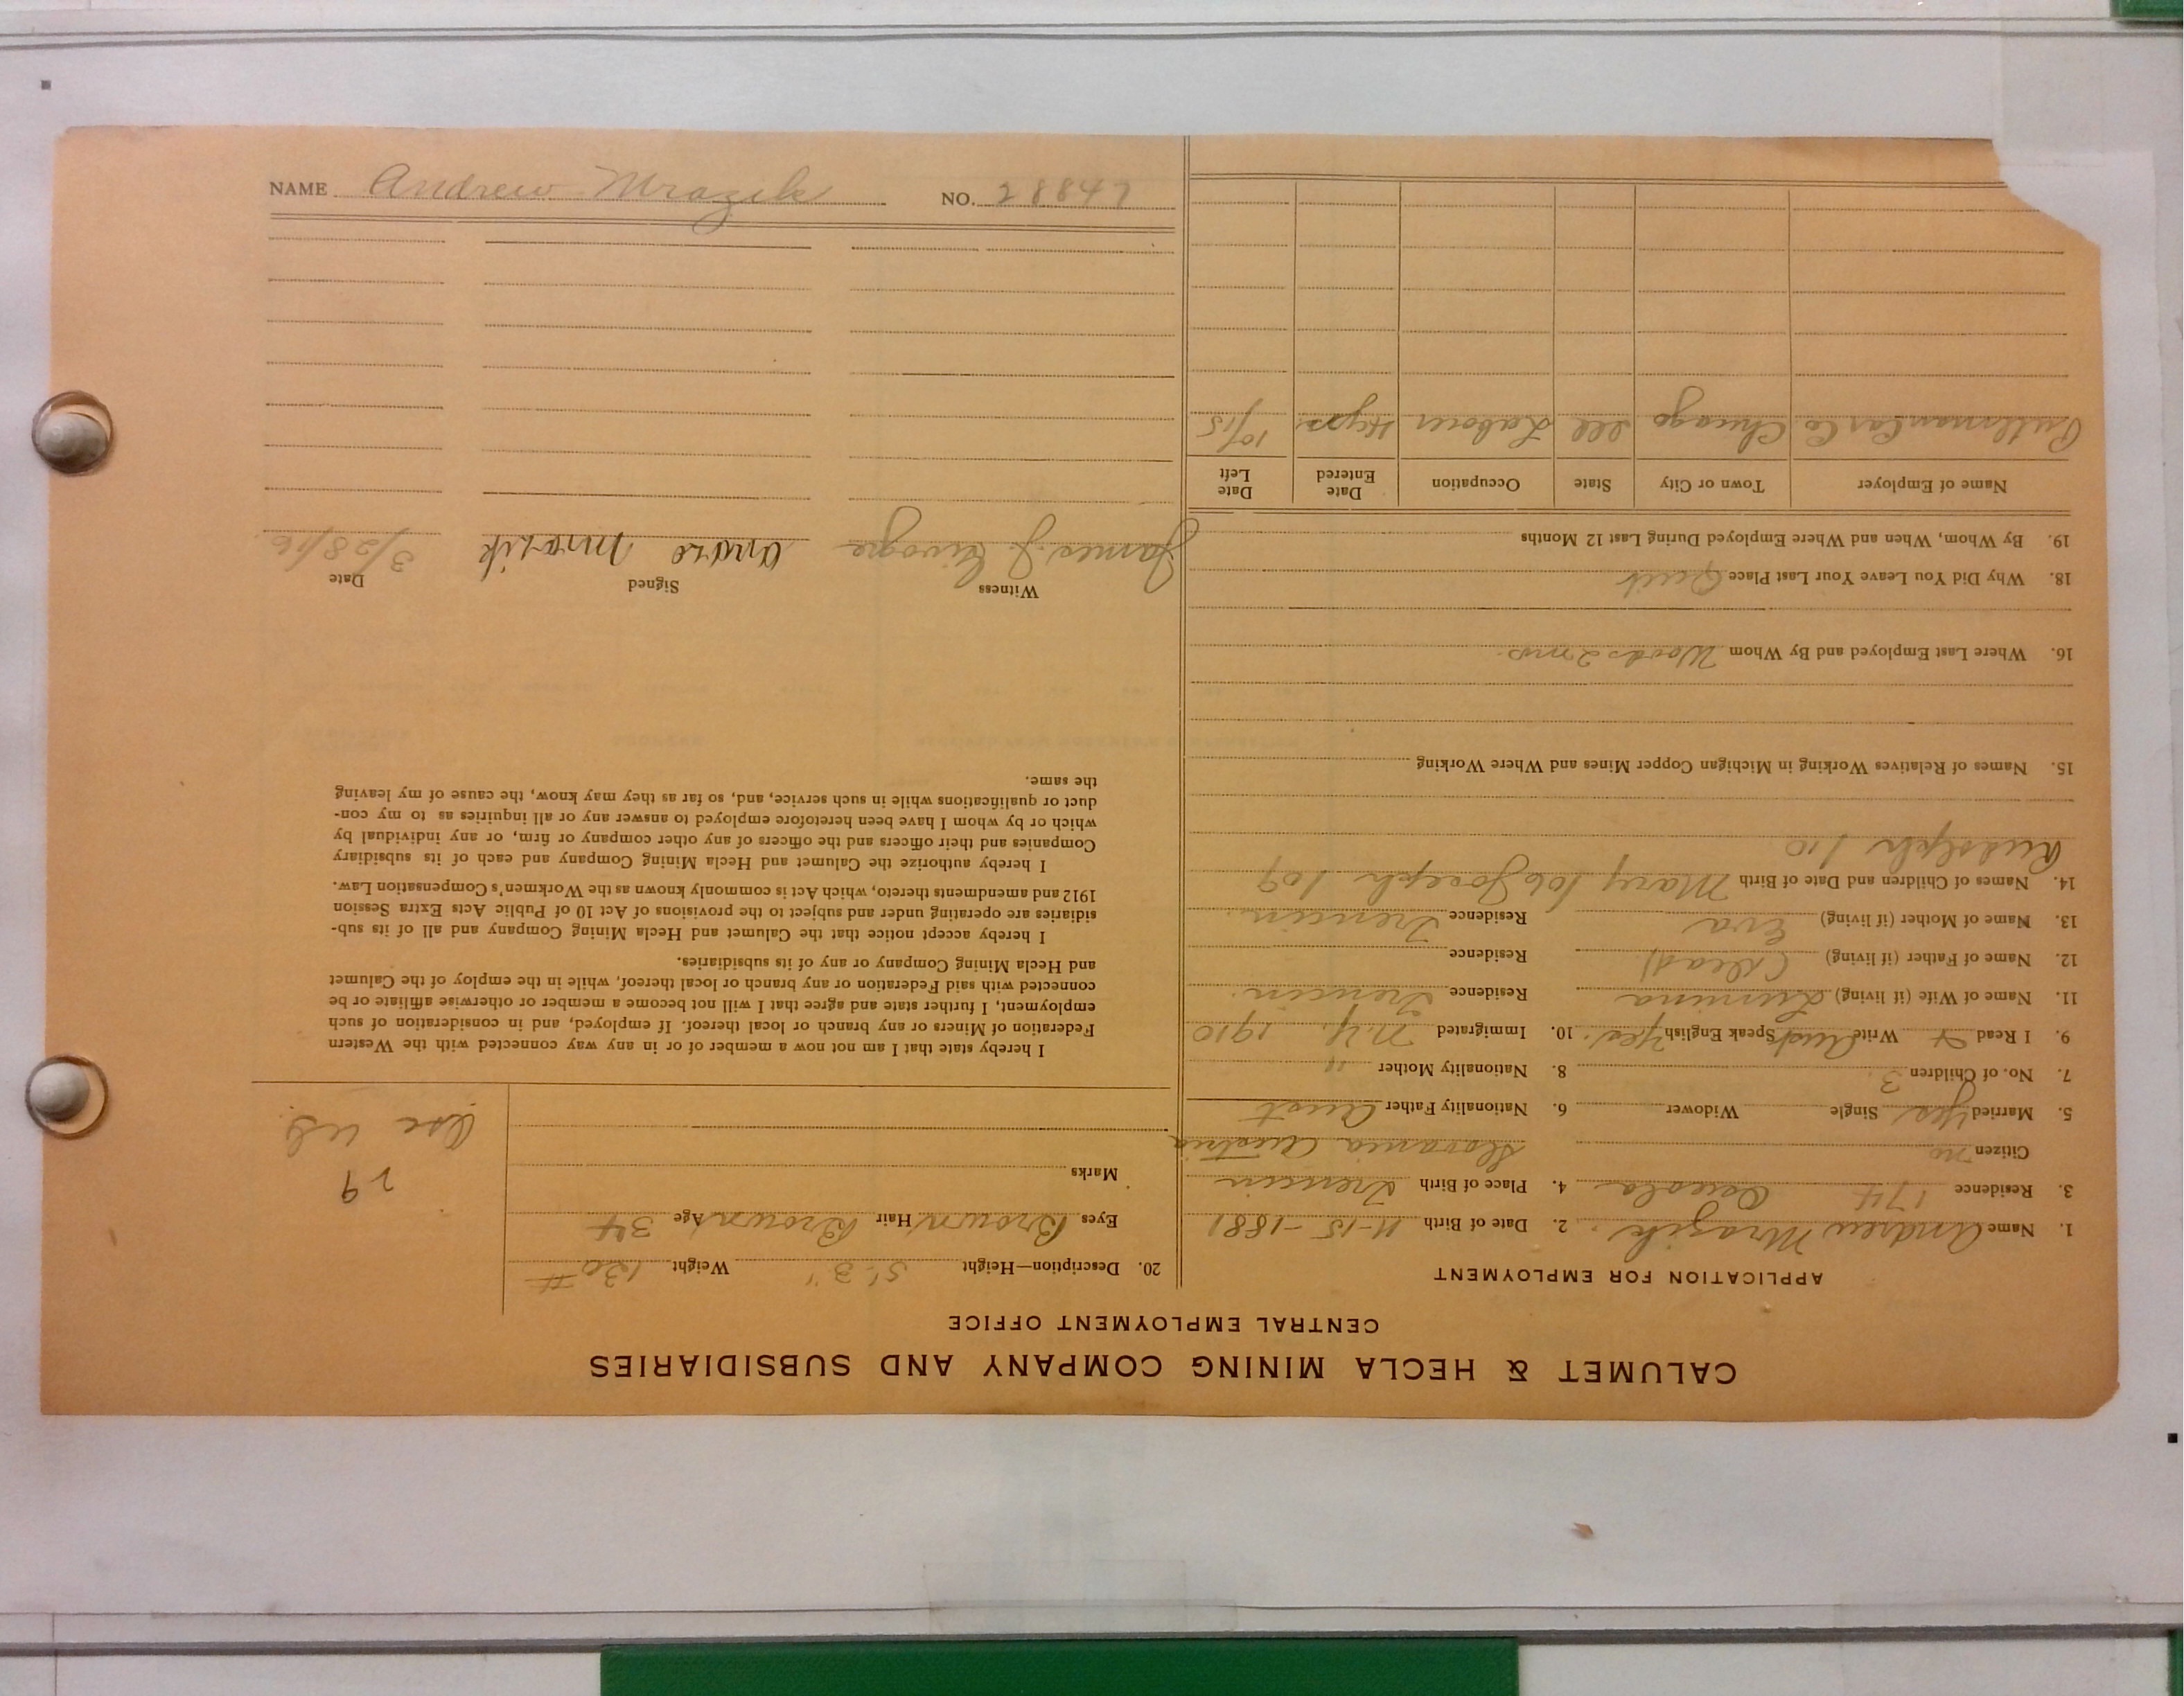 CALUMET & HECLA MINING COMPANY AND SUBSIDIARIES
CENTRAL EMPLOYMENT OFFICE
APPLICATION FOR EMPLOYMENT
1. Name Andrew Mrazik 2. Date of Birth 11-15-1881
3. Residence 174 Osceola 4. Place of Birth Trencin
Citizen no Slovania Austria
5. Married Yes Single Widower 6. Nationality Father Aust
7. No. of Children 3 8. Nationality Mother "
9. I Read & Write Aust Speak English Yes. 10. Immigrated N.Y. 1910
11. Name of Wife (if living) Residence Trencin
12. Name of Father (if living) (dead) Residence
13. Name of Mother (if living) Eva Residence Trencin
14. Names of Children and Date of Birth Mary 06 Joseph 09
Rudolph 10
15. Names of Relatives Working in Michigan Copper Mines and Where Working
16. Where Last Employed and By Whom Woods 2 mo.
18. Why Did You Leave Your Last Place Quit
19. By Whom, When and Where Employed During Last 12 Months
Name of Employer Town or City State Occupation Date Entered Date Left
Pullman Car Co Chicago Ill Laborer 4 yrs 10/15
20. Description—Height 5' 3" Weight 130 #
Eyes Brown Hair Brown Age 34
Marks
29
I hereby state that I am not now a member of or in any way connected with the Western
Federation of Miners or any branch or local thereof. If employed, and in consideration of such
employment, I further state and agree that I will not become a member or otherwise affiliate or be
connected with said Federation or any branch or local thereof, while in the employ of the Calumet
and Hecla Mining Company or any of its subsidiaries.
I hereby accept notice that the Calumet and Hecla Mining Company and all of its sub-
sidiaries are operating under and subject to the provisions of Act 10 of Public Acts Extra Session
1912 and amendments thereto, which Act is commonly known as the Workmen's Compensation Law.
I hereby authorize the Calumet and Hecla Mining Company and each of its subsidiary
Companies and their officers and the officers of any other company or firm, or any individual by
which or by whom I have been heretofore employed to answer any or all inquiries as to my con-
duct or qualifications while in such service, and, so far as they may know, the cause of my leaving
the same.
Witness Signed Date
James J. 3/28/16
NAME Andrew Mrazik NO. 28847